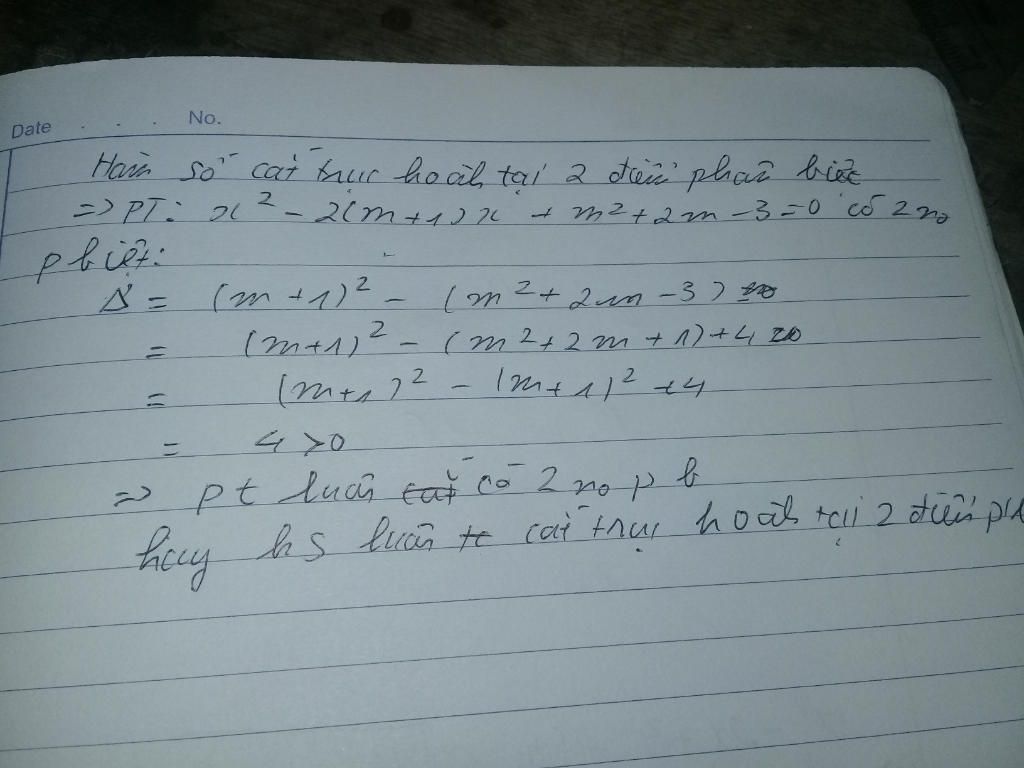 Date . . . No.
Hàm số cắt trục hoành tại 2 điểm phân biệt
=> PT: x² - 2(m+1)x + m² + 2m - 3 = 0 có 2 no
p biệt:
Δ' = (m+1)² - (m² + 2m - 3)
= (m+1)² - (m² + 2m + 1) + 4
= (m+1)² - (m+1)² + 4
= 4 > 0
=> pt luôn cắt có 2 no p b
hay hs luôn cắt trục hoành tại 2 điểm